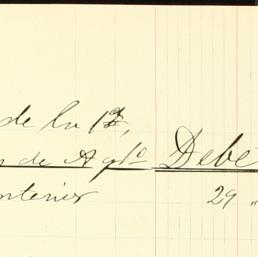 de la 1ª,
de Agto Debe
nterior 29 „